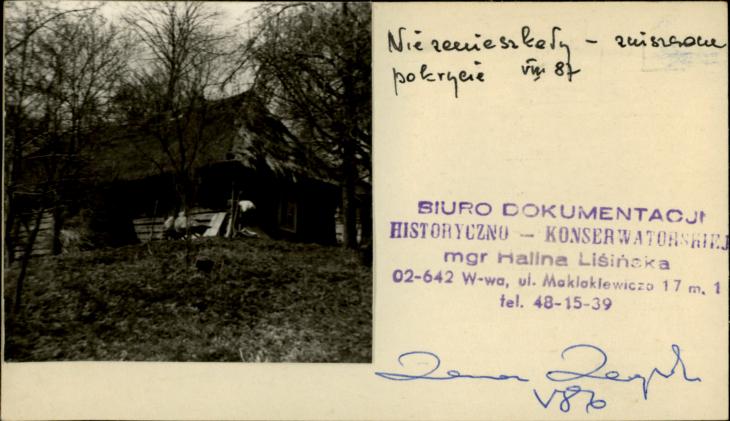 Niezamieszkały - zniszczone
pokrycie VIII 87
BIURO DOKUMENTACJI
HISTORYCZNO - KONSERWATORSKIEJ
mgr Halina Lisińska
02-642 W-wa, ul. Maklakiewicza 17 m. 1
tel. 48-15-39